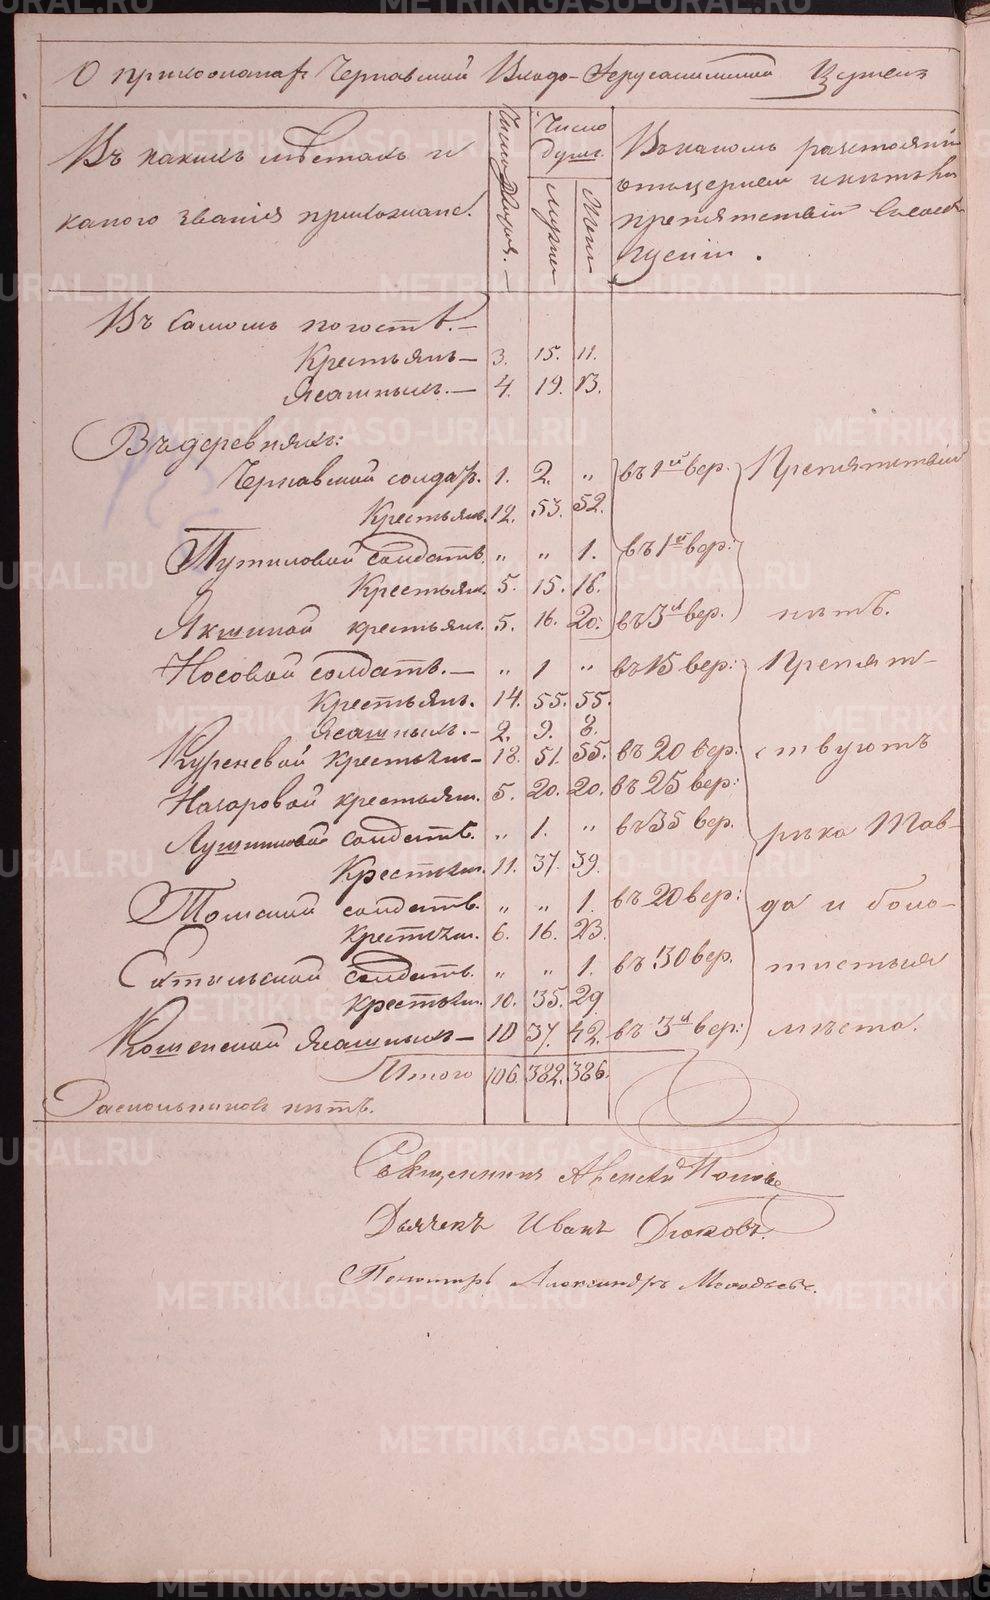 О прихожанахъ Чернавской Входо-Іерусалимской Церкви
Въ какихъ мѣстахъ и
какого званія прихожане.
Число дворовъ.
Число
душъ.
мужск
женс
Въ какомъ разстояніи
отъ церкви и нѣтъ ли
препятствій въ сооб
щеніи.
Въ самомъ погостѣ.—
Крестьянъ— 3. 15. 11.
Ясашныхъ.— 4. 19. 13.
Въ деревняхъ:
Чернавской солдат. 1. 2. „ въ 1й вер. Препятствій
Крестьянъ. 12. 53. 52.
Путиловой солдатъ. „ „ 1. въ 1й вер:
Крестьян. 5. 15. 16.
Якшиной крестьян. 5. 16. 20. въ 3й вер. нѣтъ.
Носовой солдатъ.— „ 1 „ въ 15 вер: Препят-
Крестьянъ. 14. 55. 55.
Ясашныхъ.— 2. 9. 8.
Куреневой крестьян— 18. 51. 55. въ 20 вер: ствуютъ
Назаровой крестьян. 5. 20. 20. въ 25 вер:
Лушниковой солдатъ. „ 1. „ въ 35 вер. рѣка Тав-
Крестьян. 11. 37. 39.
Томской солдатъ. „ „ 1. въ 20 вер: да и боло-
крестьян. 6. 16. 23.
солдатъ. „ „ 1. въ 30 вер. тистыя
крестьян. 10. 35. 29.
Кошенской Ясашныхъ— 10 37. 42. въ 3й вер: мѣста.
Итого 106. 382. 386.
Раскольниковъ нѣтъ.
Священникъ Алексѣй Поповъ
Дьячекъ Иванъ Дюковъ.
Пономарь Александръ